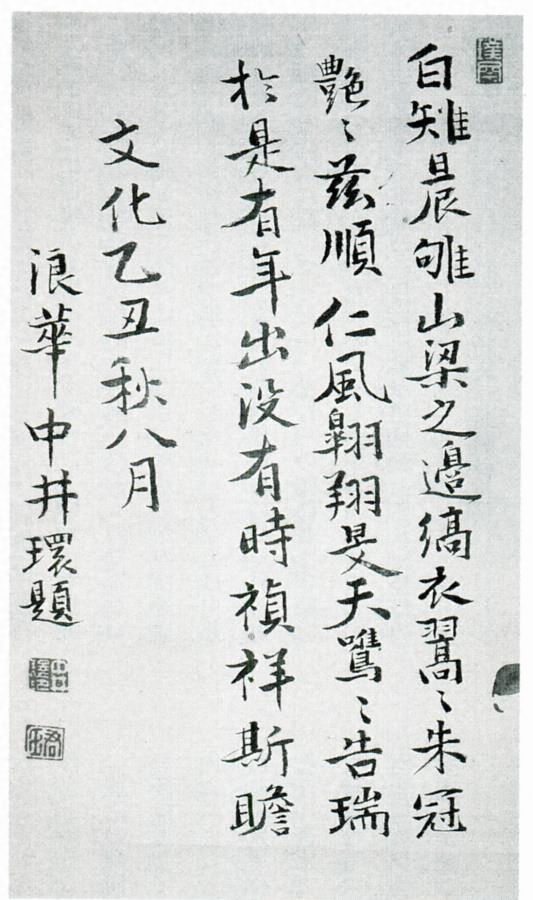 白雉晨雊山梁之邊縞衣翯〻朱冠
艶〻茲順仁風翺翔旻天鷕〻告瑞
於是有年出没有時禎祥斯瞻
文化乙丑秋八月
浪華中井環題